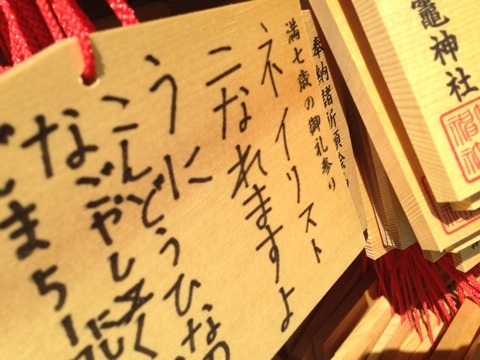 竈神社
奉納諸祈願絵
満七歳の御礼参り
ネイリスト
こなれますよ
うに
こんどうひなの
なごやし
まち1